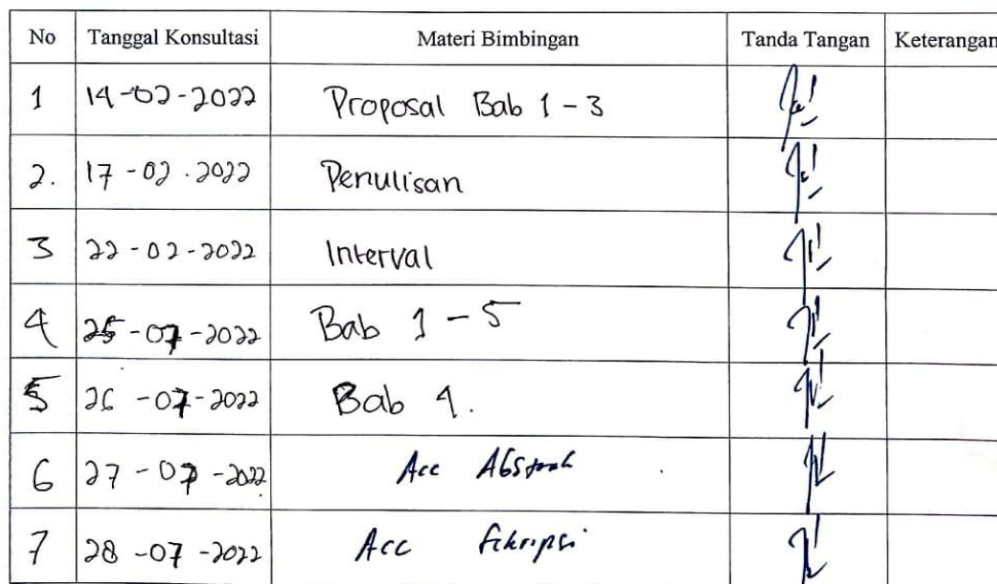 No Tanggal Konsultasi Materi Bimbingan Tanda Tangan Keterangan
1 14-02-2022 Proposal Bab 1-3
2. 17-02.2022 Penulisan
3 22-02-2022 Interval
4 25-07-2022 Bab 1-5
5 26-07-2022 Bab 4.
6 27-07-2022 Acc Abstrak
7 28-07-2022 Acc Skripsi